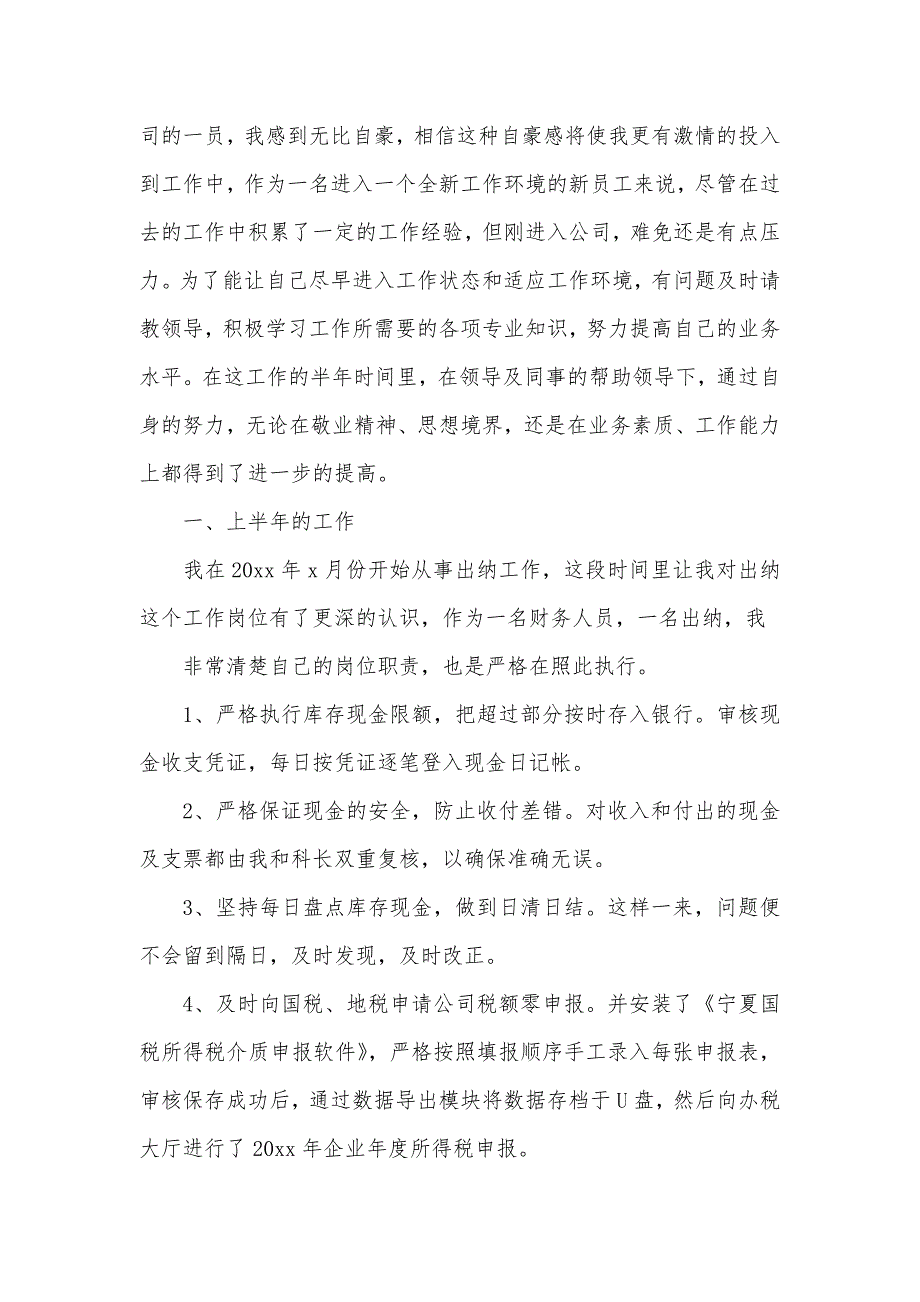 司的一员，我感到无比自豪，相信这种自豪感将使我更有激情的投入
到工作中，作为一名进入一个全新工作环境的新员工来说，尽管在过
去的工作中积累了一定的工作经验，但刚进入公司，难免还是有点压
力。为了能让自己尽早进入工作状态和适应工作环境，有问题及时请
教领导，积极学习工作所需要的各项专业知识，努力提高自己的业务
水平。在这工作的半年时间里，在领导及同事的帮助领导下，通过自
身的努力，无论在敬业精神、思想境界，还是在业务素质、工作能力
上都得到了进一步的提高。
一、上半年的工作
我在 20xx 年 x 月份开始从事出纳工作，这段时间里让我对出纳
这个工作岗位有了更深的认识，作为一名财务人员，一名出纳，我
非常清楚自己的岗位职责，也是严格在照此执行。
1、严格执行库存现金限额，把超过部分按时存入银行。审核现
金收支凭证，每日按凭证逐笔登入现金日记帐。
2、严格保证现金的安全，防止收付差错。对收入和付出的现金
及支票都由我和科长双重复核，以确保准确无误。
3、坚持每日盘点库存现金，做到日清日结。这样一来，问题便
不会留到隔日，及时发现，及时改正。
4、及时向国税、地税申请公司税额零申报。并安装了《宁夏国
税所得税介质申报软件》，严格按照填报顺序手工录入每张申报表，
审核保存成功后，通过数据导出模块将数据存档于 U 盘，然后向办税
大厅进行了 20xx 年企业年度所得税申报。